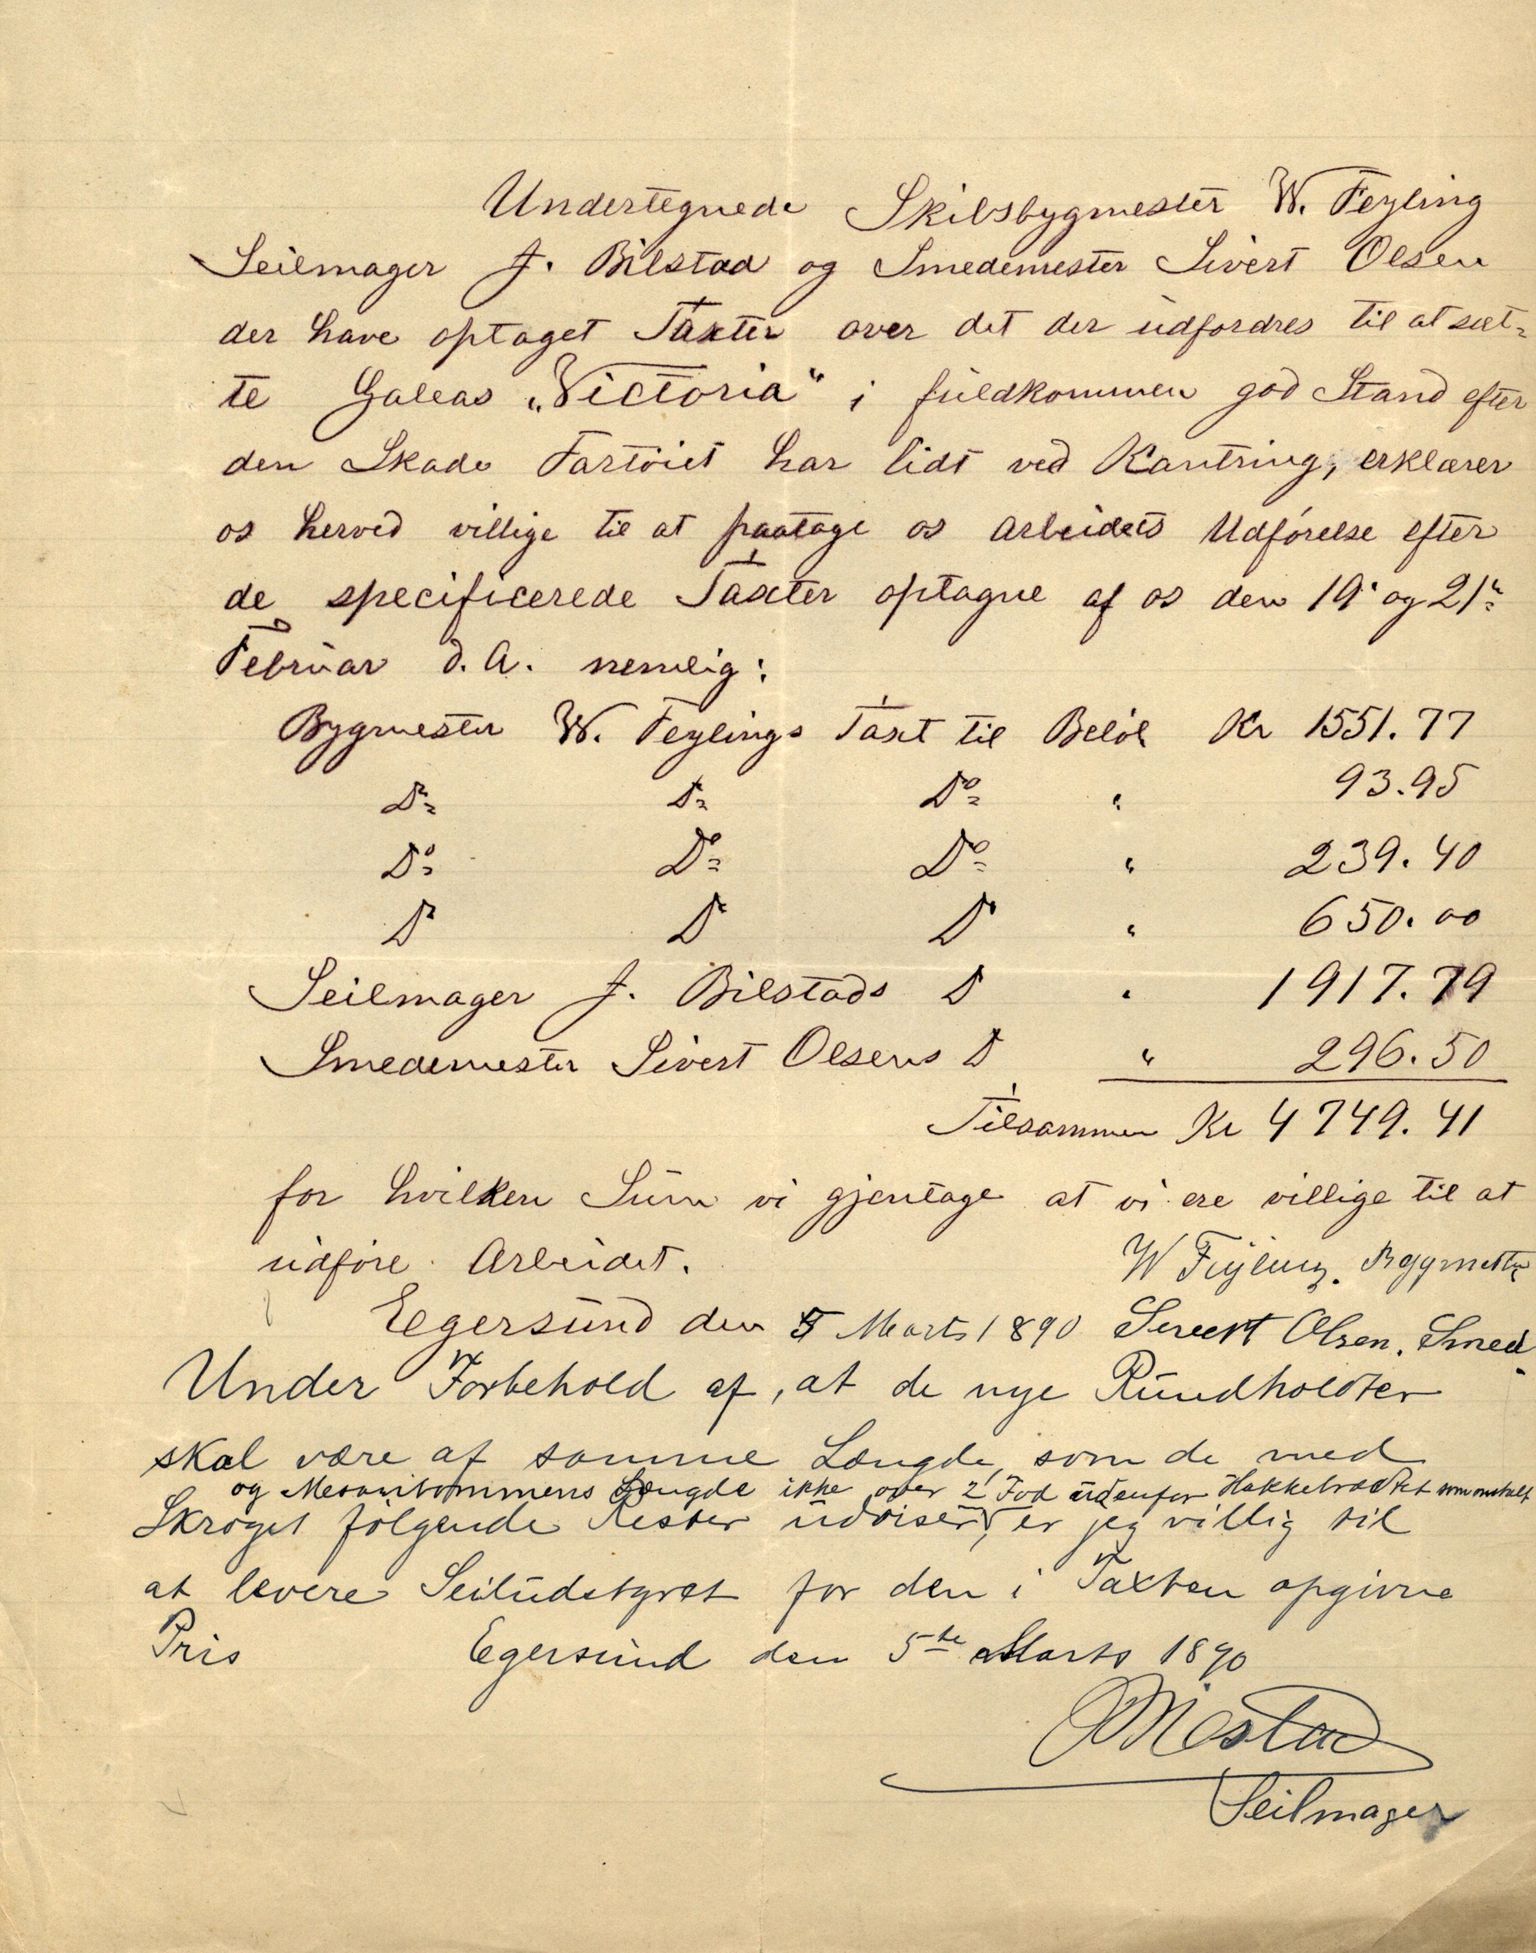 Undertegnede Skibsbygmester W. Feyling
Seilmager J. Bilstad og Smedemester Sivert Olsen
der have optaget Taxter over det der udfordres til at sæt=
te Galeas „Victoria“ i fuldkommen god Stand efter
den Skade Fartöiet har lidt ved Kantring, erklærer
os herved villige til at paatage os arbeidets Udförelse efter
de specificerede Taxter optagne af os den 19. og 21.
Februar d. A. nemlig:
Bygmester W. Feylings Taxt til Belöb Kr 1551.77
Do Do Do " 93.95
Do Do Do " 239.40
Do Do Do " 650.00
Seilmager J. Bilstads Do " 1917.79
Smedemester Sivert Olsens Do " 296.50
Tilsammen Kr 4749.41
for hvilken Sum vi gjentage at vi ere villige til at
udföre Arbeidet.
W Feyling. Bygmester
Egersund den 5 Marts 1890 Siveert Olsen. Smed
Under Forbehold af, at de nye Rundholdter
skal være af samme Længde, som de med
og Mesanbommens Længde ikke over 2 Fod udenfor Hakkebrædtet
Skroget fölgende Rester udviser, er jeg villig til
at levere Seiludstyret for den i Taxten opgivne
Pris Egersund den 5te Marts 1890
J Bilstad
Seilmager